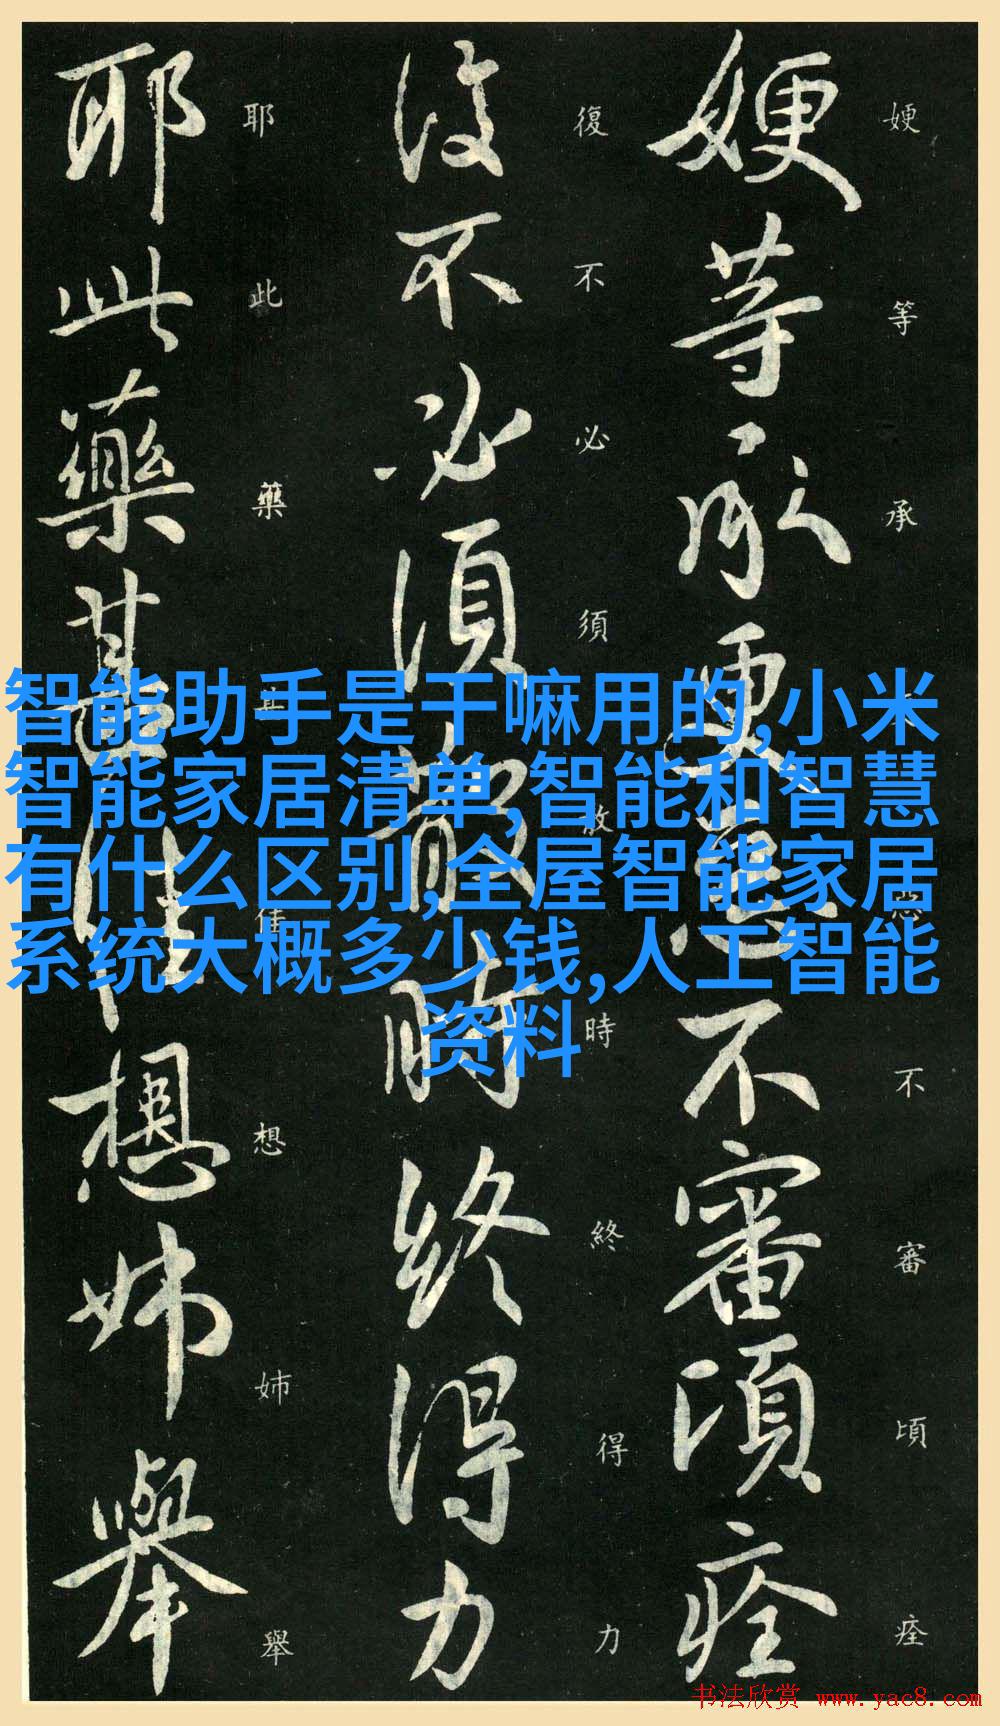 智能助手是干嘛用的,小米
智能家居清单,智能和智慧
有什么区别,全屋智能家居
系统大概多少钱,人工智能
资料
㛐等承更惡不審頃痊
㛐等承惡不審頃痊
復不必須散時終得力
復不必須散時終得力
耶此藥甚佳想姊舉
耶此藥甚佳想姊舉
书法欣赏 www.yac8.com